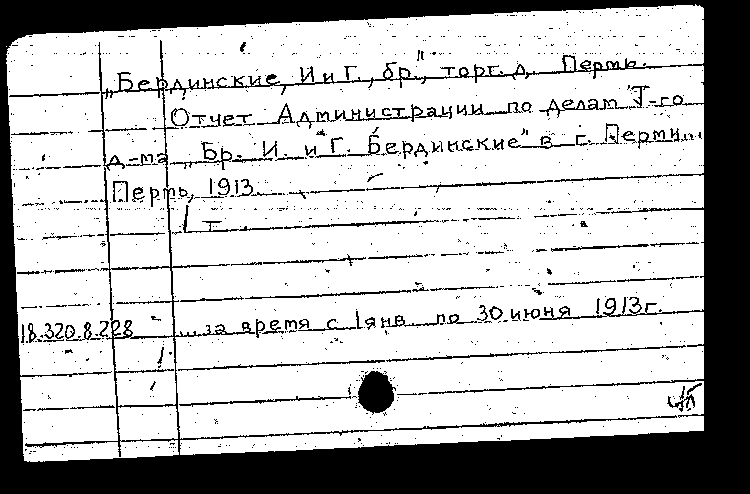 „Бердинские, И и Г., бр.", торг. д. Пермь.
Отчет Администрации по делам Т-го
д-ма „Бр. И. и Г. Бердинские" в г. Перми...
Пермь, 1913.
Т.
18.320.8.228 ...за время с 1 янв. по 30 июня 1913 г.